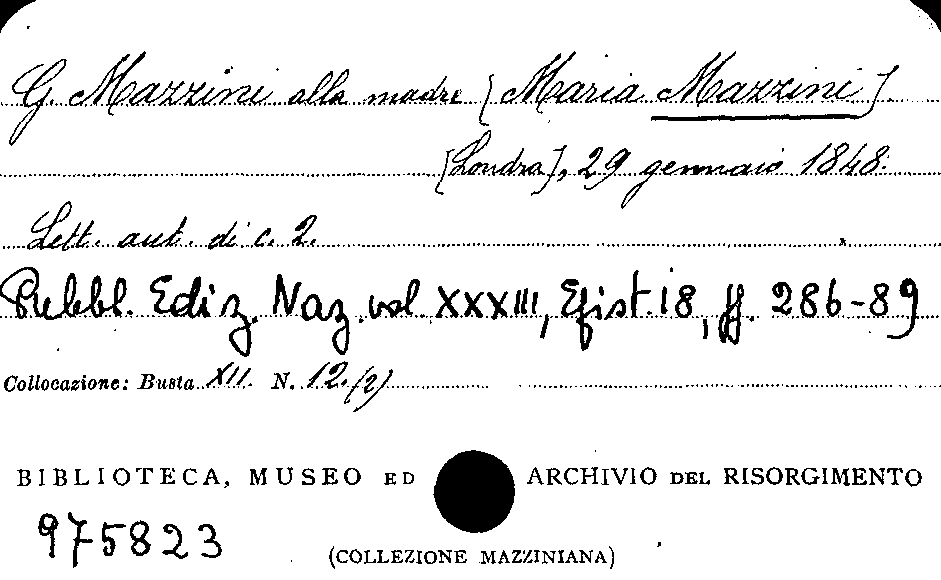 G. Mazzini alla madre [Maria Mazzini].
[Londra], 29 gennaio 1848.
Lett. aut. di c. 2.
Pubbl. Ediz. Naz. vol. XXXIII, Epist. 18, pp. 286-89
Collocazione: Busta XII. N. 12. (2)
BIBLIOTECA, MUSEO ED ARCHIVIO DEL RISORGIMENTO
975823
(COLLEZIONE MAZZINIANA)